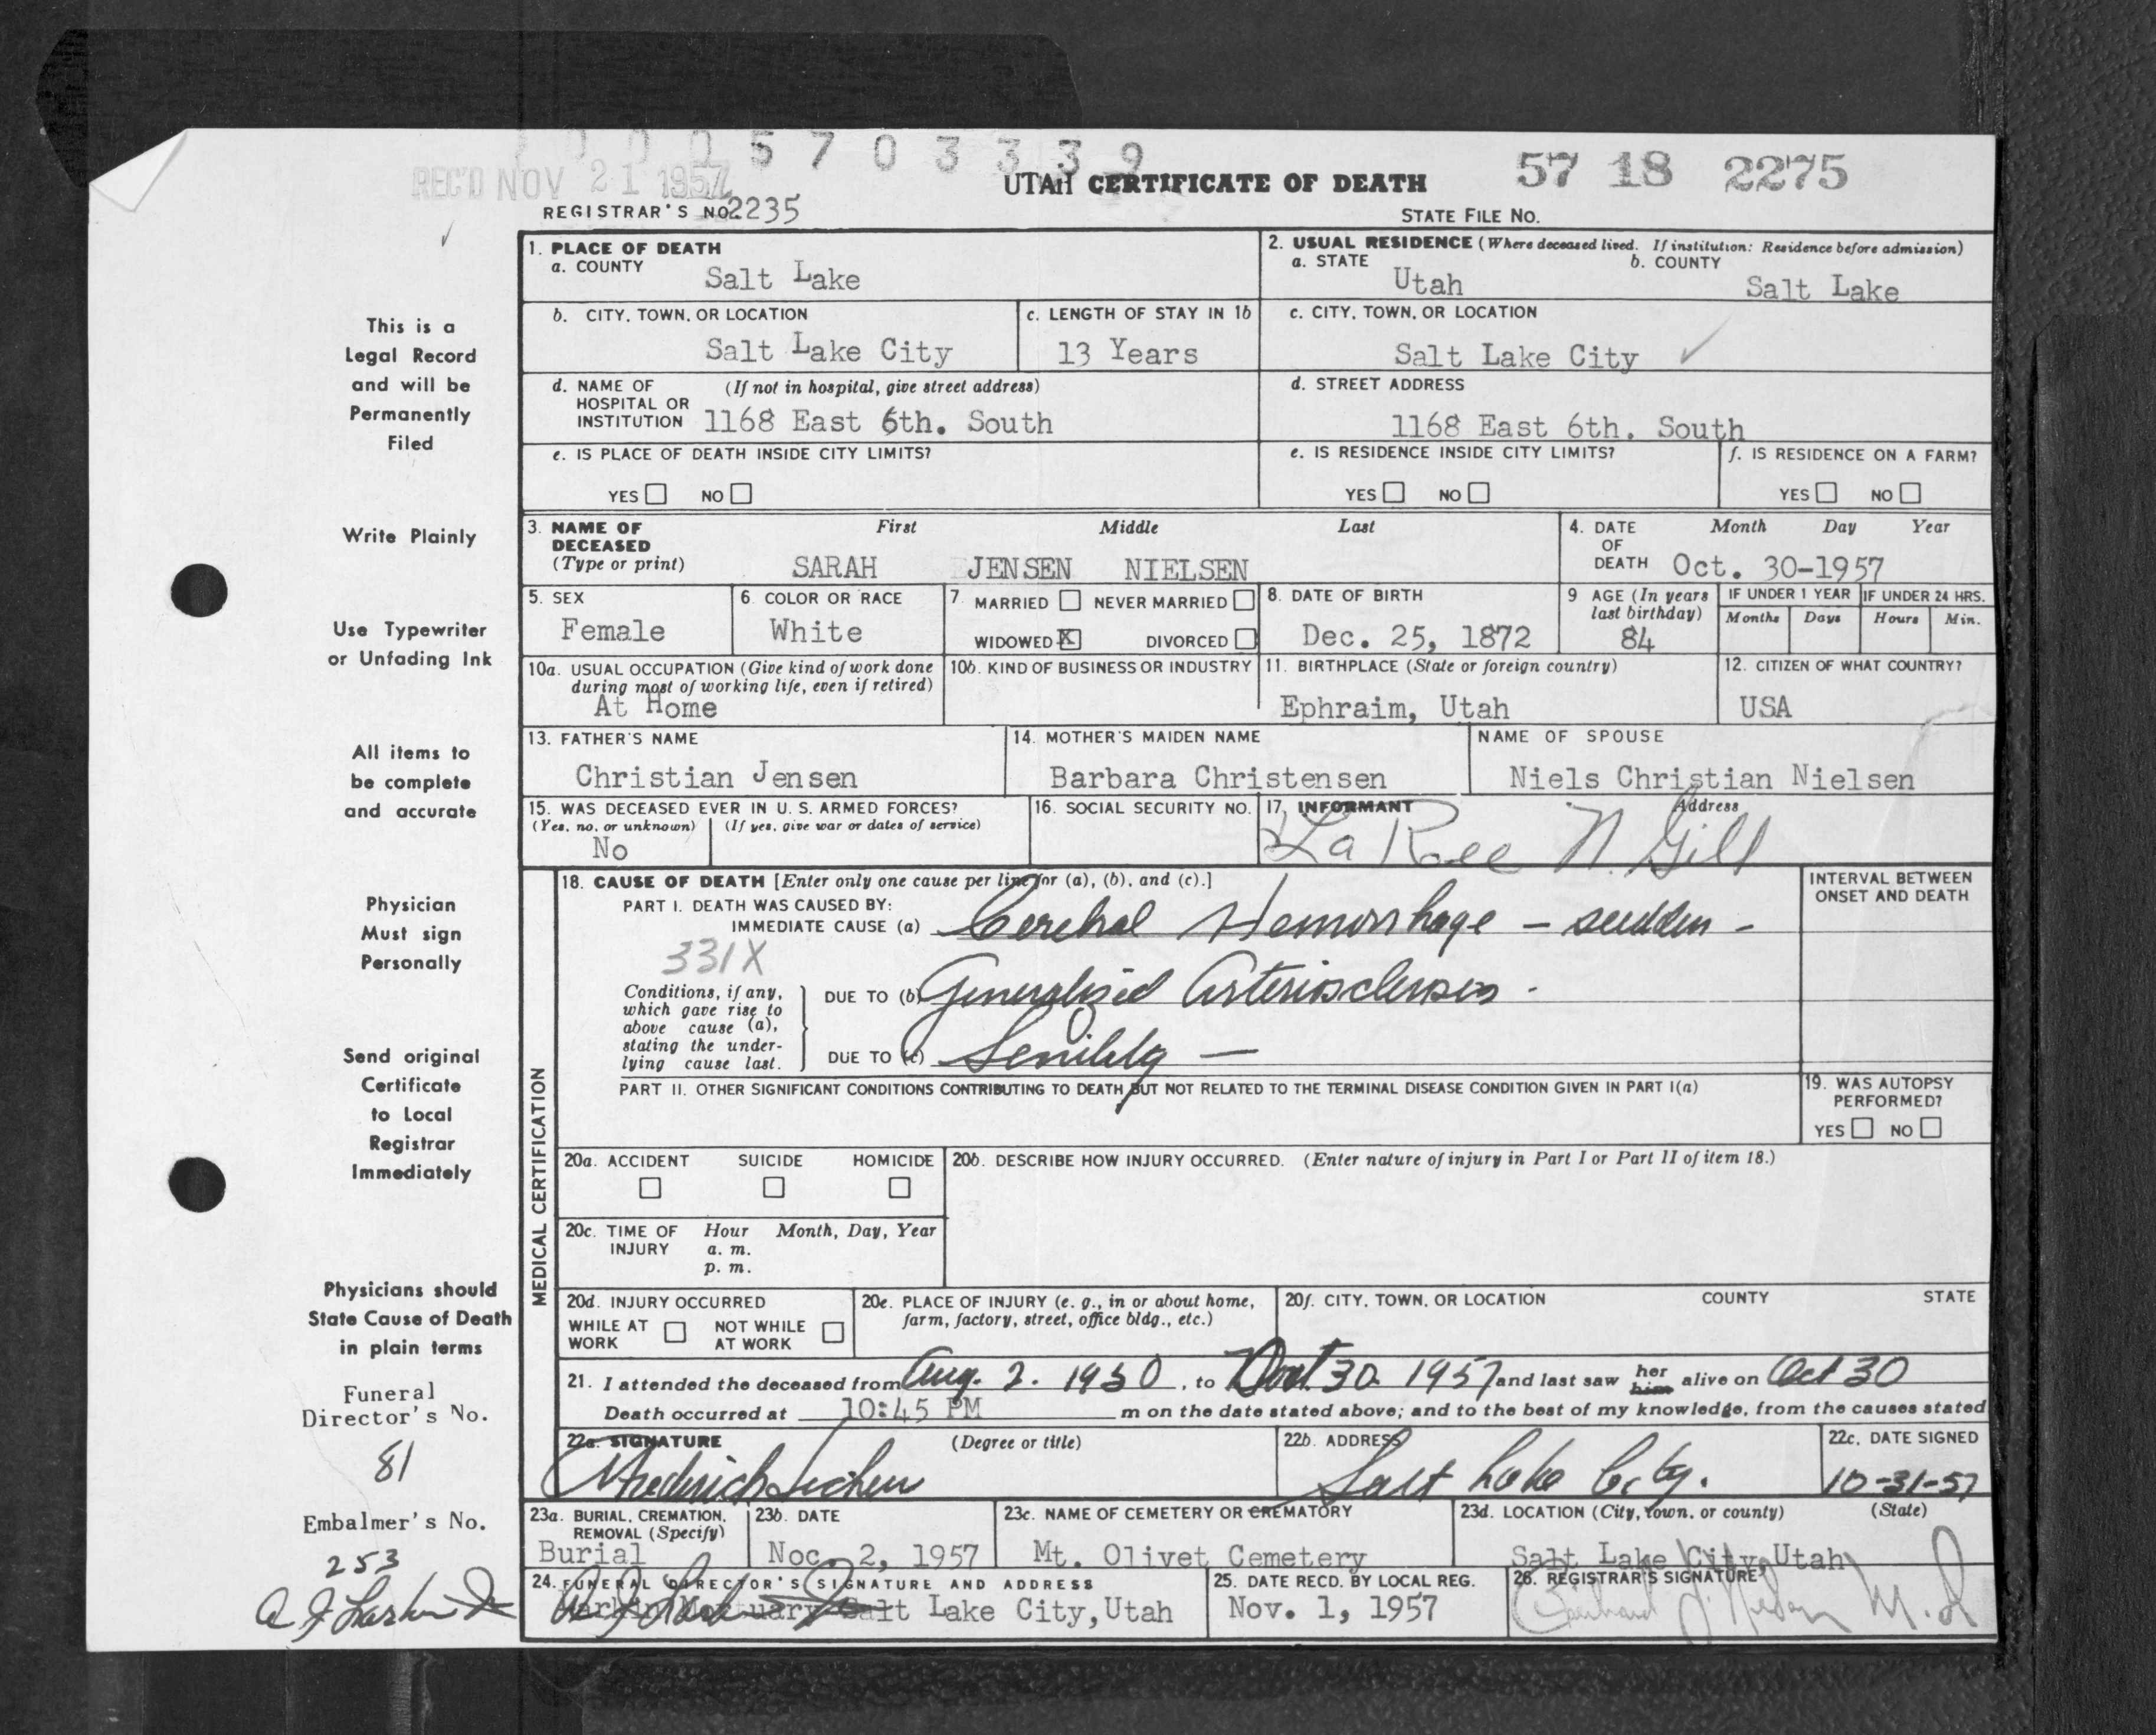 0 0 0 5 7 0 3 3 3 9
REC'D NOV 21 1957
UTAH CERTIFICATE OF DEATH
57 18 2275
REGISTRAR'S NO. 2235
STATE FILE No.
This is a
Legal Record
and will be
Permanently
Filed
Write Plainly
Use Typewriter
or Unfading Ink
All items to
be complete
and accurate
Physician
Must sign
Personally
Send original
Certificate
to Local
Registrar
Immediately
Physicians should
State Cause of Death
in plain terms
Funeral
Director's No.
81
Embalmer's No.
253
1. PLACE OF DEATH
a. COUNTY
Salt Lake
2. USUAL RESIDENCE (Where deceased lived. If institution: Residence before admission)
a. STATE
Utah
b. COUNTY
Salt Lake
b. CITY, TOWN, OR LOCATION
Salt Lake City
c. LENGTH OF STAY IN 1b
13 Years
c. CITY, TOWN, OR LOCATION
Salt Lake City
d. NAME OF (If not in hospital, give street address)
HOSPITAL OR
INSTITUTION 1168 East 6th. South
d. STREET ADDRESS
1168 East 6th. South
e. IS PLACE OF DEATH INSIDE CITY LIMITS?
YES NO
e. IS RESIDENCE INSIDE CITY LIMITS?
YES NO
f. IS RESIDENCE ON A FARM?
YES NO
3. NAME OF DECEASED (Type or print)
First Middle Last
SARAH JENSEN NIELSEN
4. DATE OF DEATH
Month Day Year
Oct. 30-1957
5. SEX
Female
6. COLOR OR RACE
White
7. MARRIED NEVER MARRIED
WIDOWED X DIVORCED
8. DATE OF BIRTH
Dec. 25, 1872
9 AGE (In years
last birthday)
84
IF UNDER 1 YEAR IF UNDER 24 HRS.
Months Days Hours Min.
10a. USUAL OCCUPATION (Give kind of work done
during most of working life, even if retired)
At Home
10b. KIND OF BUSINESS OR INDUSTRY
11. BIRTHPLACE (State or foreign country)
Ephraim, Utah
12. CITIZEN OF WHAT COUNTRY?
USA
13. FATHER'S NAME
Christian Jensen
14. MOTHER'S MAIDEN NAME
Barbara Christensen
NAME OF SPOUSE
Niels Christian Nielsen
15. WAS DECEASED EVER IN U. S. ARMED FORCES?
(Yes, no, or unknown) (If yes, give war or dates of service)
No
16. SOCIAL SECURITY NO.
17. INFORMANT Address
La Ree N. Gill
MEDICAL CERTIFICATION
18. CAUSE OF DEATH [Enter only one cause per line for (a), (b), and (c).]
INTERVAL BETWEEN
ONSET AND DEATH
PART I. DEATH WAS CAUSED BY:
IMMEDIATE CAUSE (a) Cerebral Hemorrhage - sudden -
331X
Conditions, if any,
which gave rise to
above cause (a),
stating the under-
lying cause last.
DUE TO (b) Generalized Arteriosclerosis -
DUE TO (c) Senility —
PART II. OTHER SIGNIFICANT CONDITIONS CONTRIBUTING TO DEATH BUT NOT RELATED TO THE TERMINAL DISEASE CONDITION GIVEN IN PART I(a)
19. WAS AUTOPSY
PERFORMED?
YES NO
20a. ACCIDENT SUICIDE HOMICIDE
20b. DESCRIBE HOW INJURY OCCURRED. (Enter nature of injury in Part I or Part II of item 18.)
20c. TIME OF INJURY
Hour Month, Day, Year
a. m.
p. m.
20d. INJURY OCCURRED
WHILE AT WORK NOT WHILE AT WORK
20e. PLACE OF INJURY (e. g., in or about home,
farm, factory, street, office bldg., etc.)
20f. CITY, TOWN, OR LOCATION COUNTY STATE
21. I attended the deceased from Aug. 2. 1950, to Oct. 30 1957 and last saw her him alive on Oct 30
Death occurred at 10:45 PM m on the date stated above; and to the best of my knowledge, from the causes stated
22a. SIGNATURE (Degree or title)
22b. ADDRESS
Salt Lake City.
22c. DATE SIGNED
10-31-57
23a. BURIAL, CREMATION,
REMOVAL (Specify)
Burial
23b. DATE
Noc. 2, 1957
23c. NAME OF CEMETERY OR CREMATORY
Mt. Olivet Cemetery
23d. LOCATION (City, town, or county) (State)
Salt Lake City, Utah
24. FUNERAL DIRECTOR'S SIGNATURE AND ADDRESS
Larkin Mortuary Salt Lake City, Utah
25. DATE RECD. BY LOCAL REG.
Nov. 1, 1957
26. REGISTRAR'S SIGNATURE
M.D